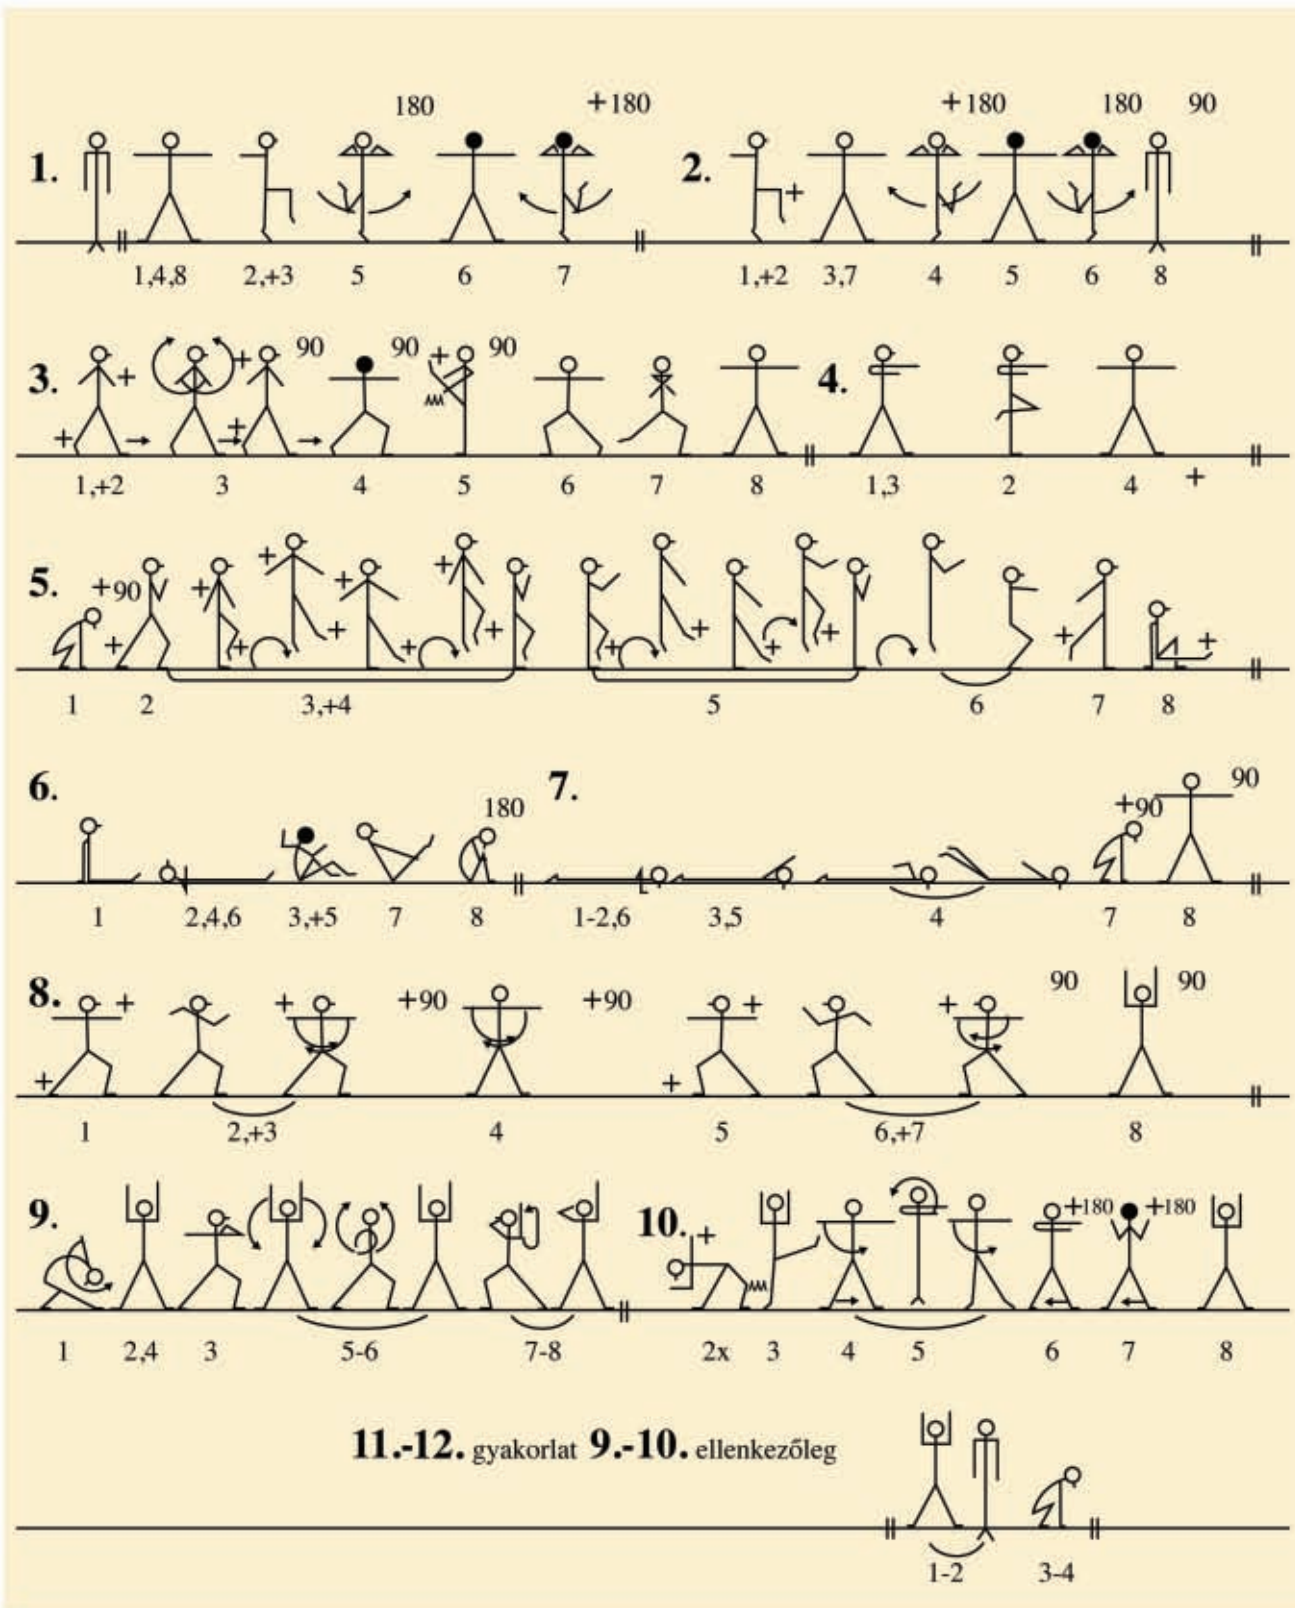 180 +180 +180 180 90
1. 2.
1,4,8 2,+3 5 6 7 1,+2 3,7 4 5 6 8
90 90 90
3. 4.
1,+2 3 4 5 6 7 8 1,3 2 4 +
5. +90
1 2 3,+4 5 6 7 8
6. 180 7. +90 90
1 2,4,6 3,+5 7 8 1-2,6 3,5 4 7 8
8. + + +90 +90 + + 90 90
1 2,+3 4 5 6,+7 8
9. 10. + +180 +180
1 2,4 3 5-6 7-8 2x 3 4 5 6 7 8
11.-12. gyakorlat 9.-10. ellenkezőleg
1-2 3-4